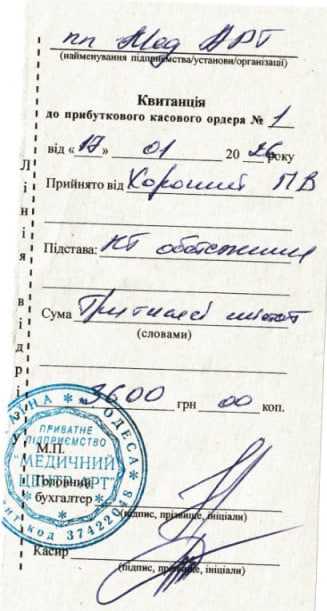 пп Мед АРТ
(найменування підприємства/установи/організації)
Квитанція
до прибуткового касового ордера № 1
від « 17 » 01 20 26 року
Прийнято від Хороший П В
Підстава: КТ обстеження
Сума Три тисячі шістсот
(словами)
3600 грн 00 коп.
М.П.
Головний
бухгалтер
(підпис, прізвище, ініціали)
Касир
(підпис, прізвище, ініціали)
Лінія відрізу
ОДЕСА
ПРИВАТНЕ
ПІДПРИЄМСТВО
"МЕДИЧНИЙ
ЦЕНТР АРТ"
код 37422048